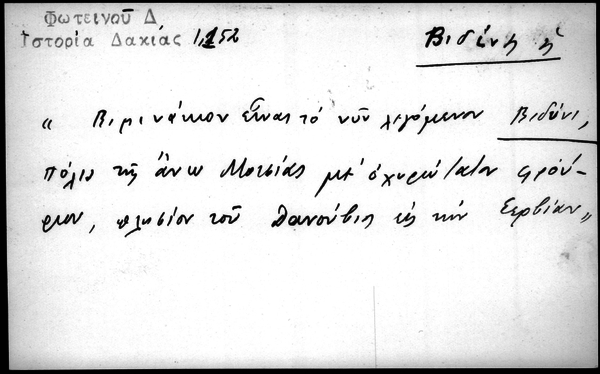 Φωτεινοῦ Δ
Ἱστορία Δακίας 1,152
Βιδύνη ἡ
" Βιμινάκιον εἶναι τό νῦν λεγόμενον Βιδύνι,
πόλις τῆς ἄνω Μοισίας μέ ὀχυρώτατον φρού-
ριον, πλησίον τοῦ Δανούβις εἰς τήν Σερβίαν"